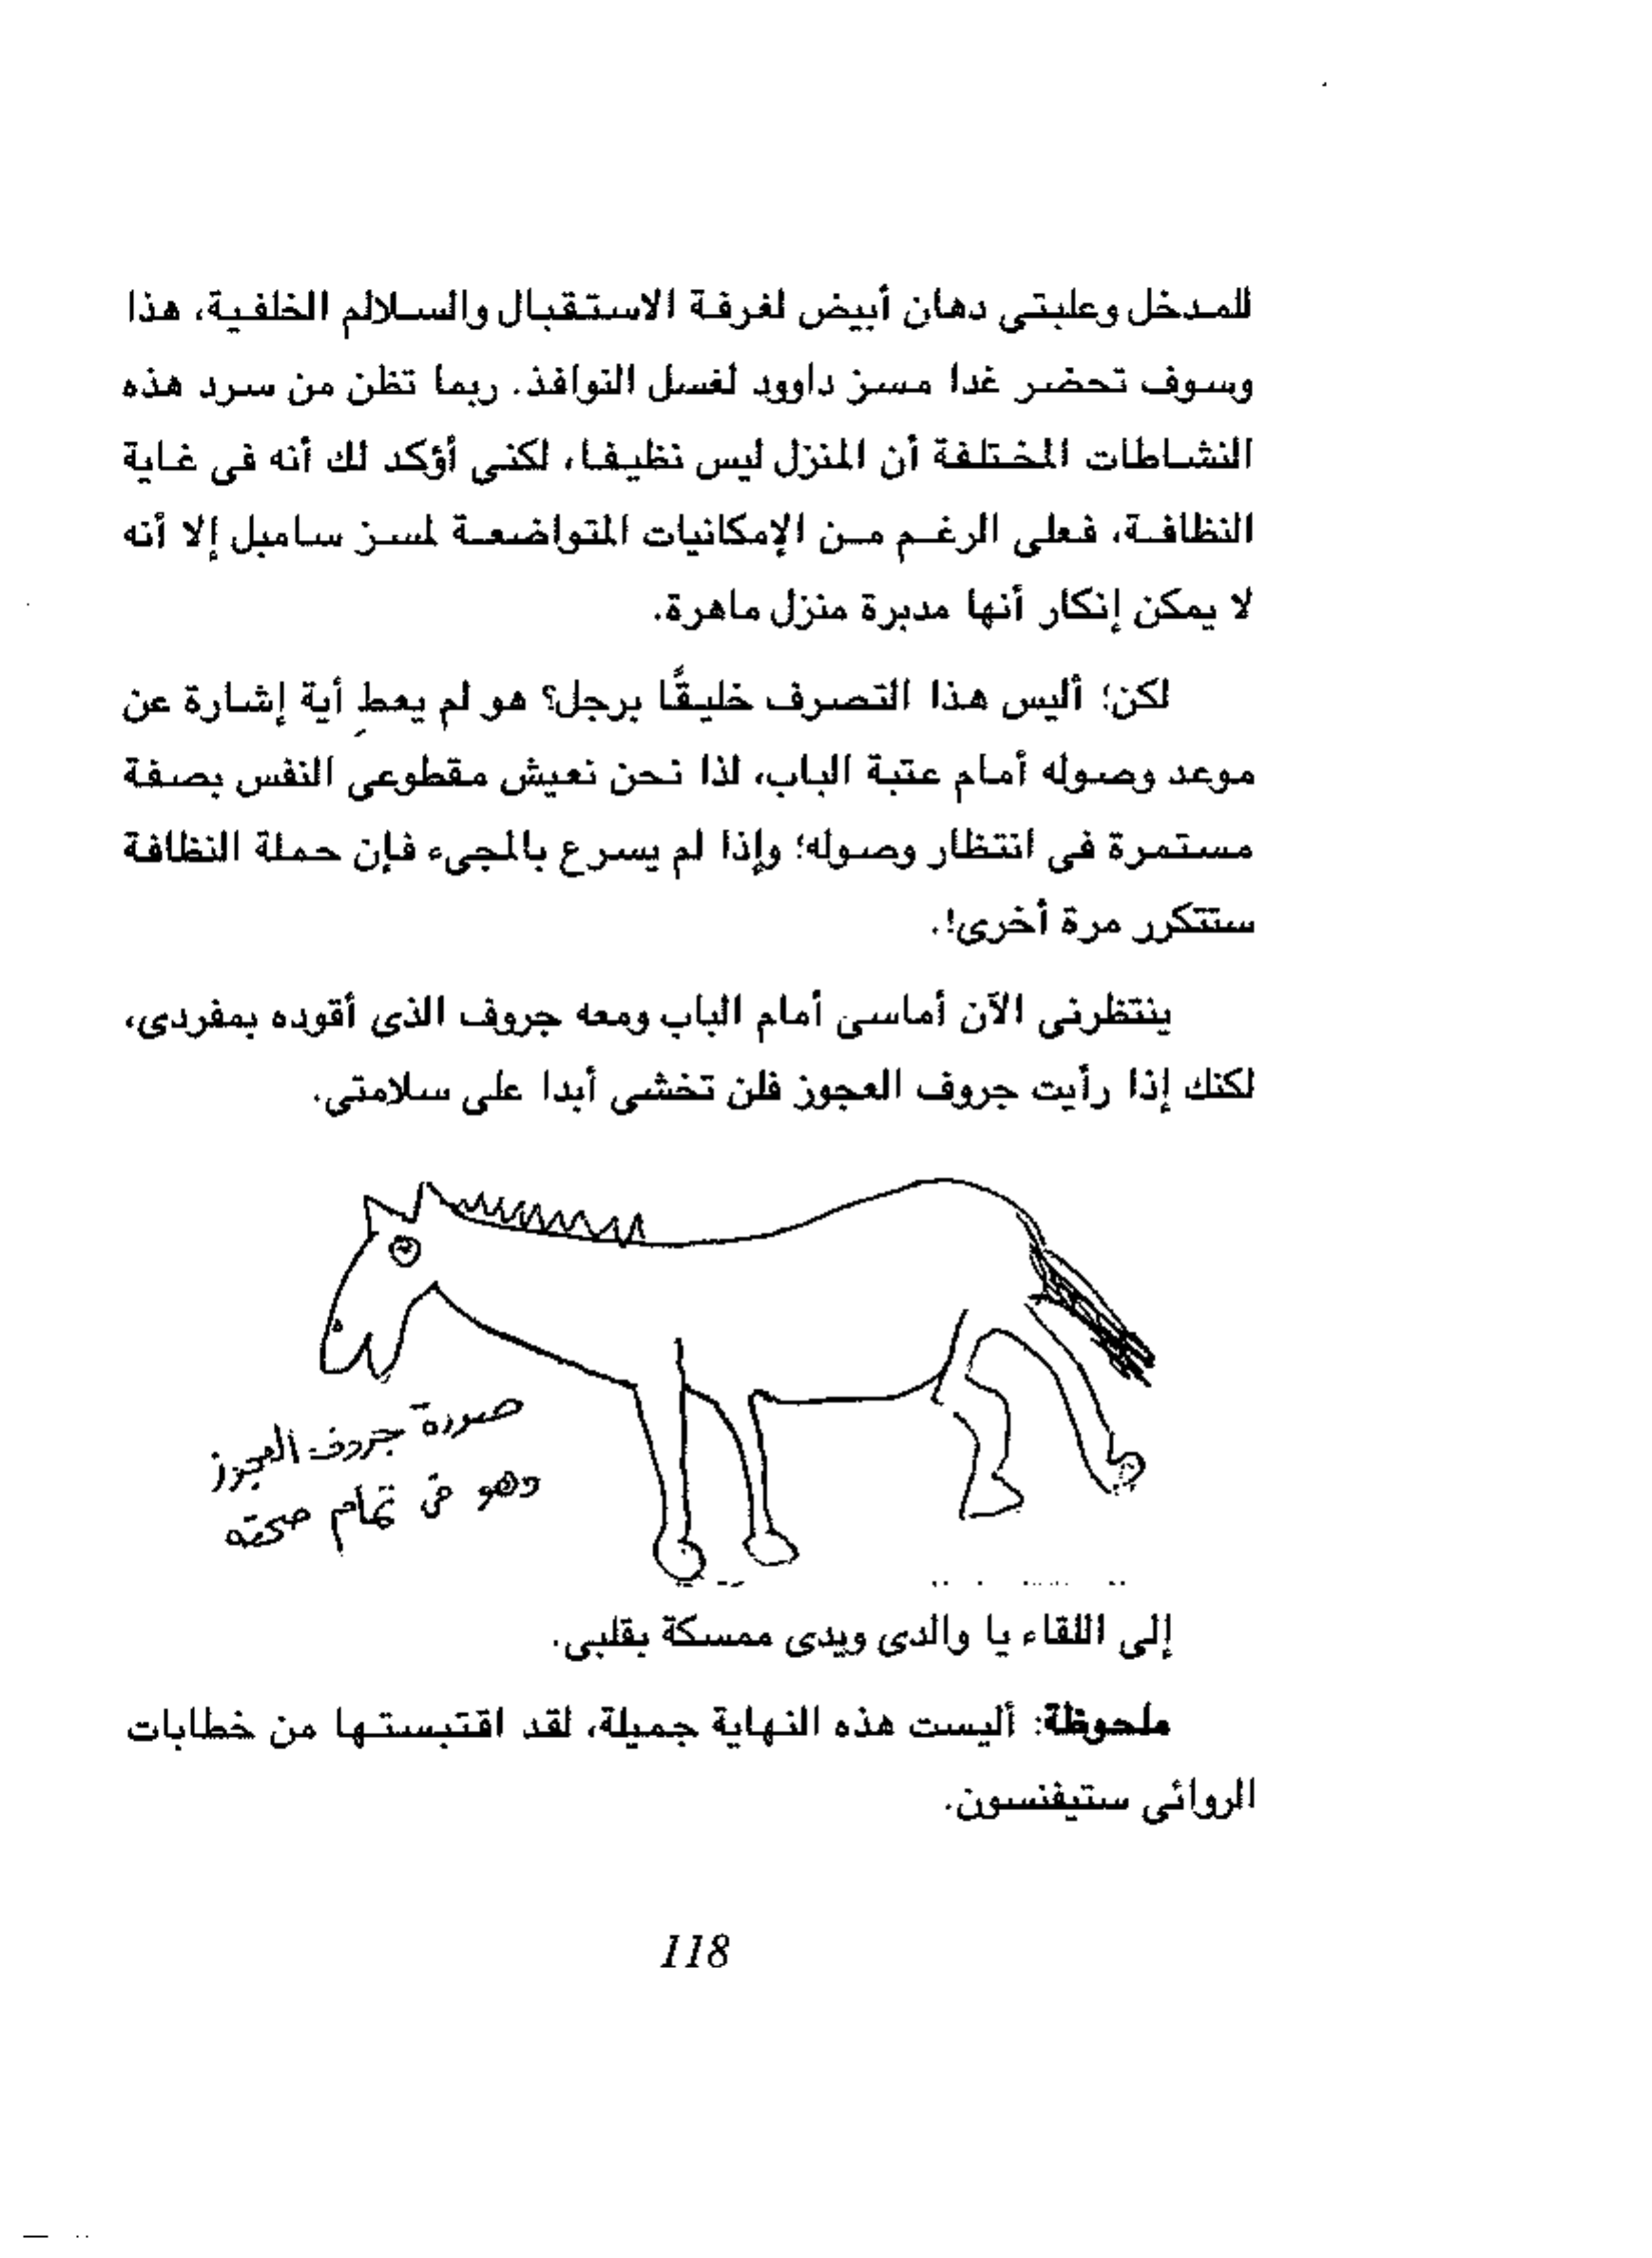 للمدخل وعلبتى دهان أبيض لغرفة الاستقبال والسلالم الخلفية، هذا
وسوف تحضر غدا مسز داوود لغسل النوافذ. ربما تظن من سرد هذه
النشاطات المختلفة أن المنزل ليس نظيفا، لكنى أؤكد لك أنه فى غاية
النظافة، فعلى الرغم من الإمكانيات المتواضعة لمسز سامبل إلا أنه
لا يمكن إنكار أنها مدبرة منزل ماهرة.
لكن؛ أليس هذا التصرف خليقًا برجل؟ هو لم يعطِ أية إشارة عن
موعد وصوله أمام عتبة الباب، لذا نحن نعيش مقطوعى النفس بصفة
مستمرة فى انتظار وصوله؛ وإذا لم يسرع بالمجىء فإن حملة النظافة
ستتكرر مرة أخرى!.
ينتظرنى الآن أماسى أمام الباب ومعه جروف الذى أقوده بمفردى،
لكنك إذا رأيت جروف العجوز فلن تخشى أبدا على سلامتى.
صورة جروف العجوز
وهو فى تمام صحته
إلى اللقاء يا والدى ويدى ممسكة بقلبى.
ملحوظة: أليست هذه النهاية جميلة، لقد اقتبستها من خطابات
الروائى ستيفنسون.
118